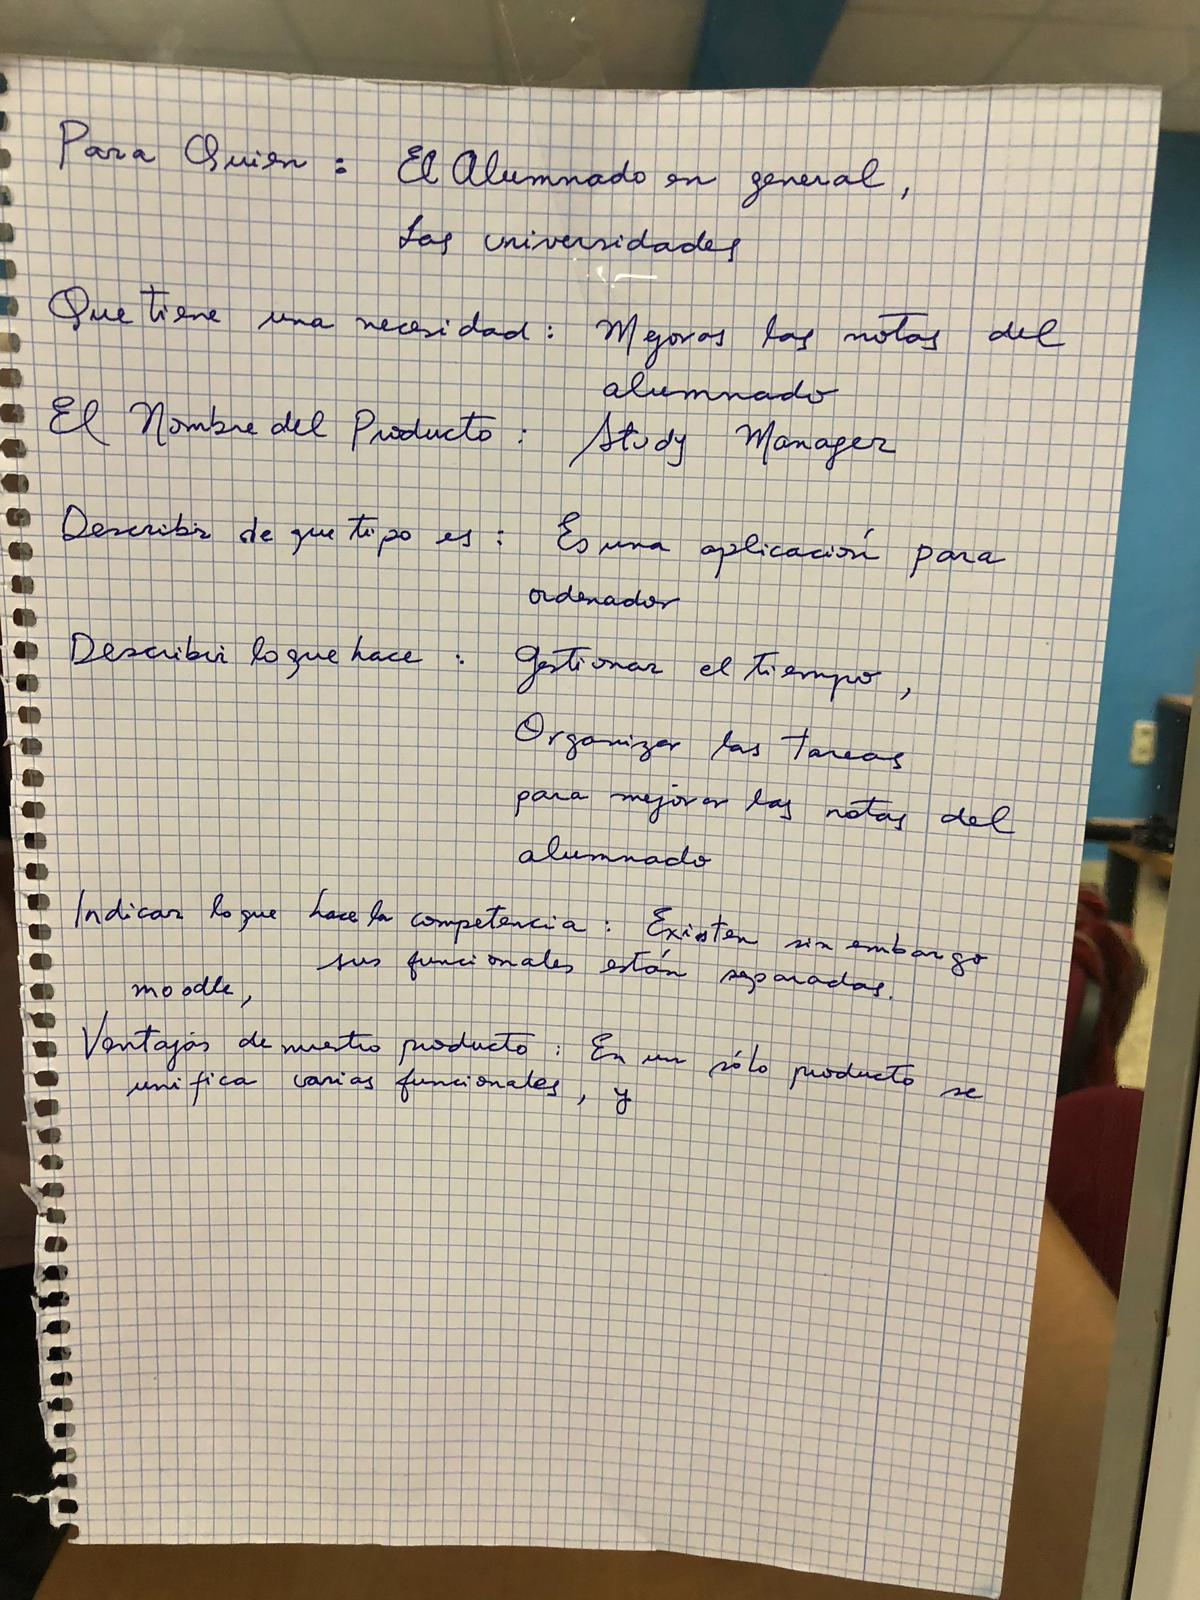 Para Quien : El Alumnado en general,
Las universidades
Que tiene una necesidad : Mejoras las notas del
alumnado
El Nombre del Producto : Study Manager
Describir de que tipo es : Es una aplicación para
ordenador
Describir lo que hace : Gestionar el tiempo,
Organizar las tareas
para mejorar las notas del
alumnado
Indicar lo que hace la competencia : Existen sin embargo
sus funcionales están separadas.
moodle,
Ventajas de nuestro producto : En un sólo producto se
unifica varias funcionales, y